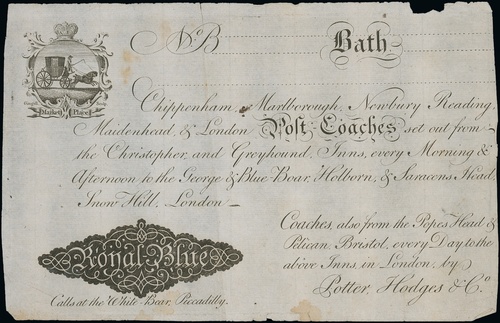 No B Bath
Chippenham, Marlborough, Newbury Reading,
Maidenhead, & London Post Coaches set out from
the Christopher, and Greyhound, Inns, every Morning &
Afternoon to the George & Blue Boar, Holborn, & Saracens Head,
Snow Hill, London
Coaches, also from the Popes Head &
Pelican, Bristol, every Day to the
above Inns, in London, by
Potter, Hodges & Co.
Royal Blue
Calls at the White Bear, Piccadilly.